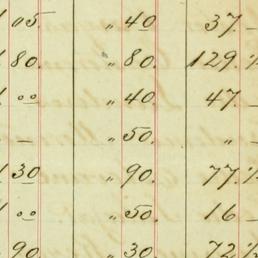 05. " 40 37. –
80. " 80. 129.
00 " 40. 47 –
– " 50. " –
30 " 90. 77.
00 " 50. 16 –
90. " 30. 72.